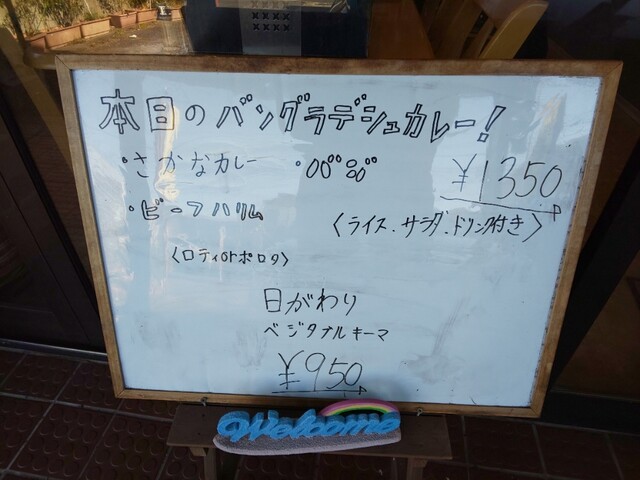 本日のバングラデシュカレー!
・さかなカレー
¥1350
・ビーフハリム
〈ライス、サラダ、ドリンク付き〉
〈ロティorポロタ〉
日がわり
ベジタブルキーマ
¥950
Welcome